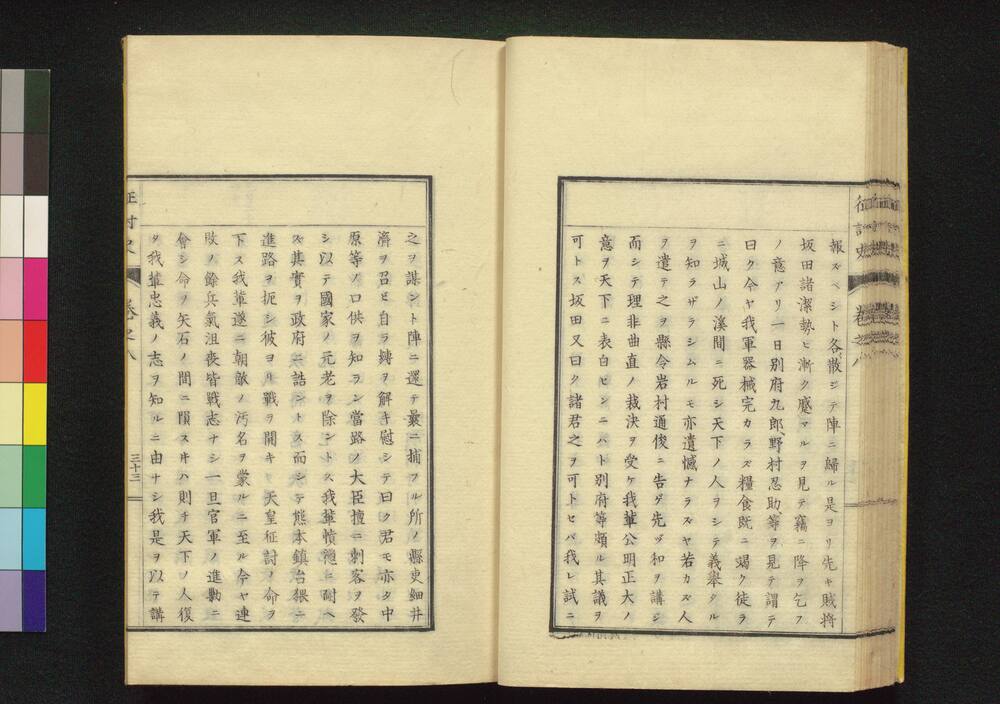 報ズベシト各散ジテ陣ニ歸ル是ヨリ先キ賊將
坂田諸潔勢ヒ漸ク蹙マルヲ見テ竊ニ降ヲ乞フ
ノ意アリ一日別府九郎、野村忍助等ヲ見テ謂テ
曰ク今ヤ我軍器械完カラズ糧食既ニ竭ク徒ラ
ニ城山ノ溪間ニ死シ天下ノ人ヲシテ義擧タル
ヲ知ラザラシムルモ亦遺憾ナラズヤ若カズ人
ヲ遣テ之ヲ縣令岩村通俊ニ告ゲ先ヅ和ヲ講ジ
而シテ理非曲直ノ裁決ヲ受ケ我輩公明正大ノ
意ヲ天下ニ表白センニハト別府等頗ル其議ヲ
可トス坂田又曰ク諸君之ヲ可トセバ我レ試ニ
之ヲ謀ント陣ニ還テ曩ニ捕フル所ノ縣吏細井
濟ヲ召ヒ自ラ縛ヲ解キ慰シテ曰ク君モ亦タ中
原等ノ口供ヲ知ラン當路ノ大臣擅ニ刺客ヲ發
シ以テ國家ノ元老ヲ除ントス我輩憤懣ニ耐ヘ
ス其實ヲ政府ニ詰ントス而シテ熊本鎮台猥ニ
進路ヲ扼シ彼ヨリ戰ヲ開キ 天皇征討ノ命ヲ
下ス我輩遂ニ朝敵ノ汚名ヲ蒙ルニ至ル今ヤ連
敗ノ餘兵氣沮喪皆戰志ナシ一旦官軍ノ進勦ニ
會シ命ヲ矢石ノ間ニ隕スキハ則チ天下ノ人復
タ我輩忠義ノ志ヲ知ルニ由ナシ我是ヲ以テ講
征討史 卷之八 三十三